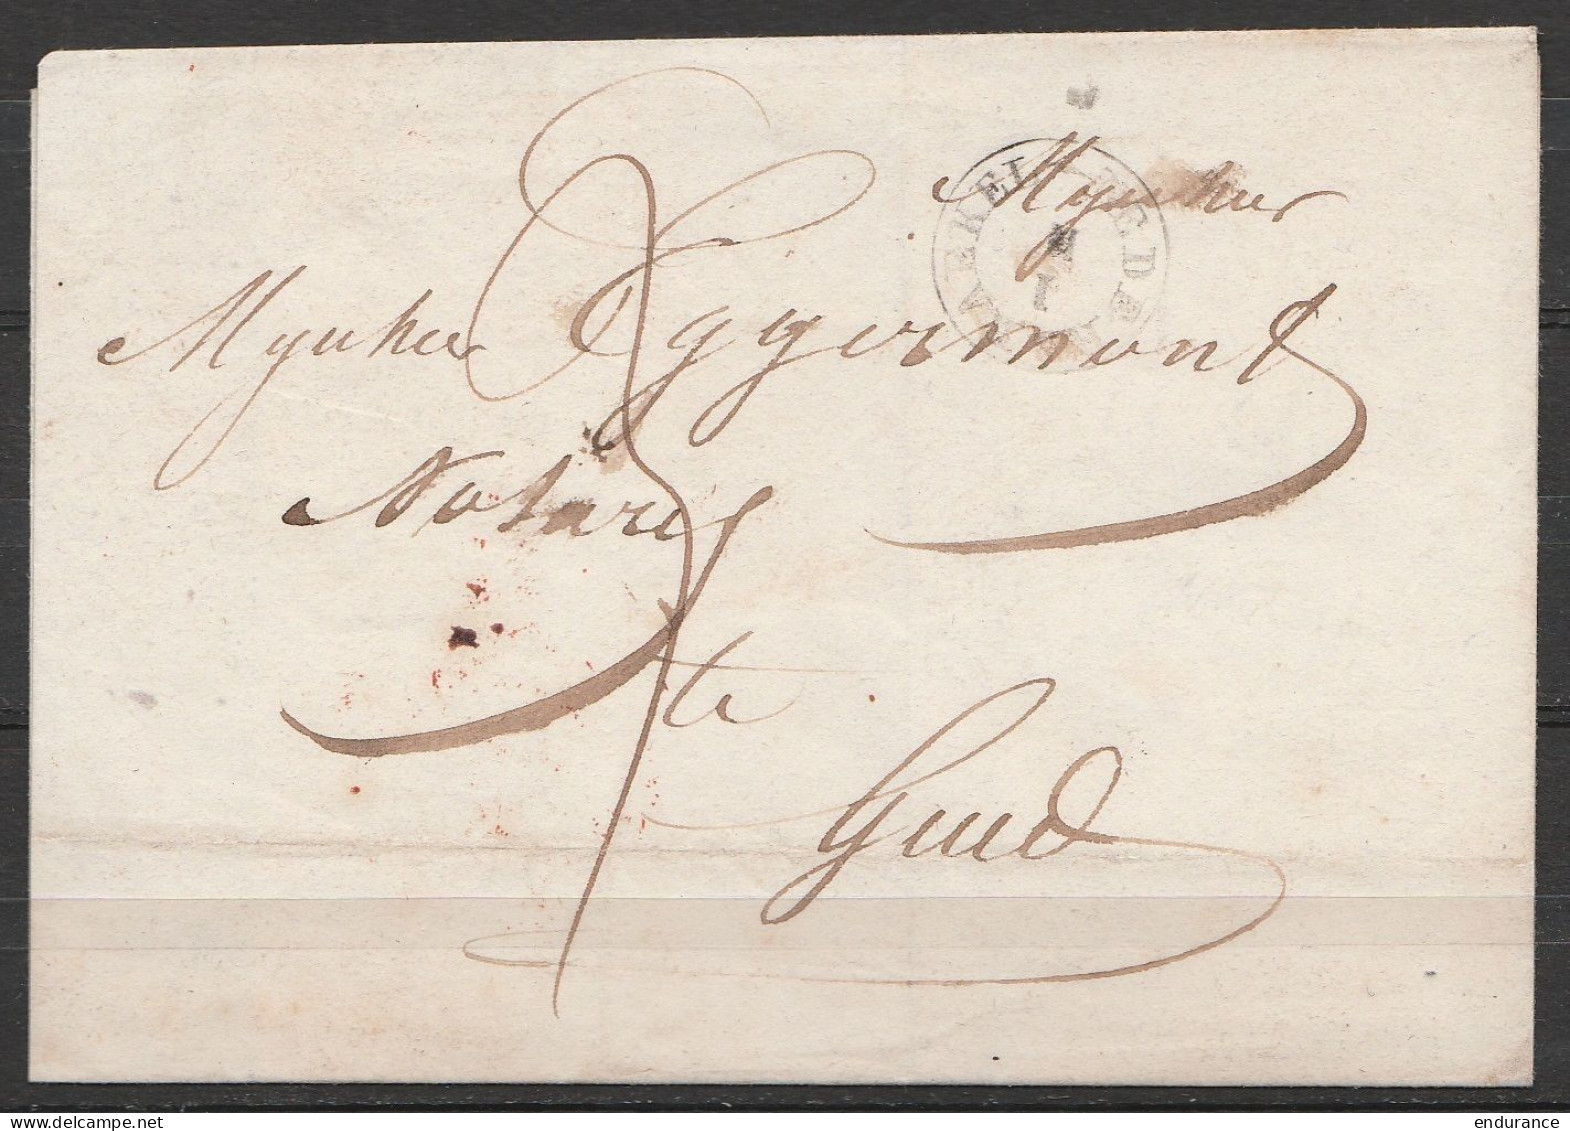 Mynheer
Mynheer Eggermont
Notaris
te
Gend
endurance